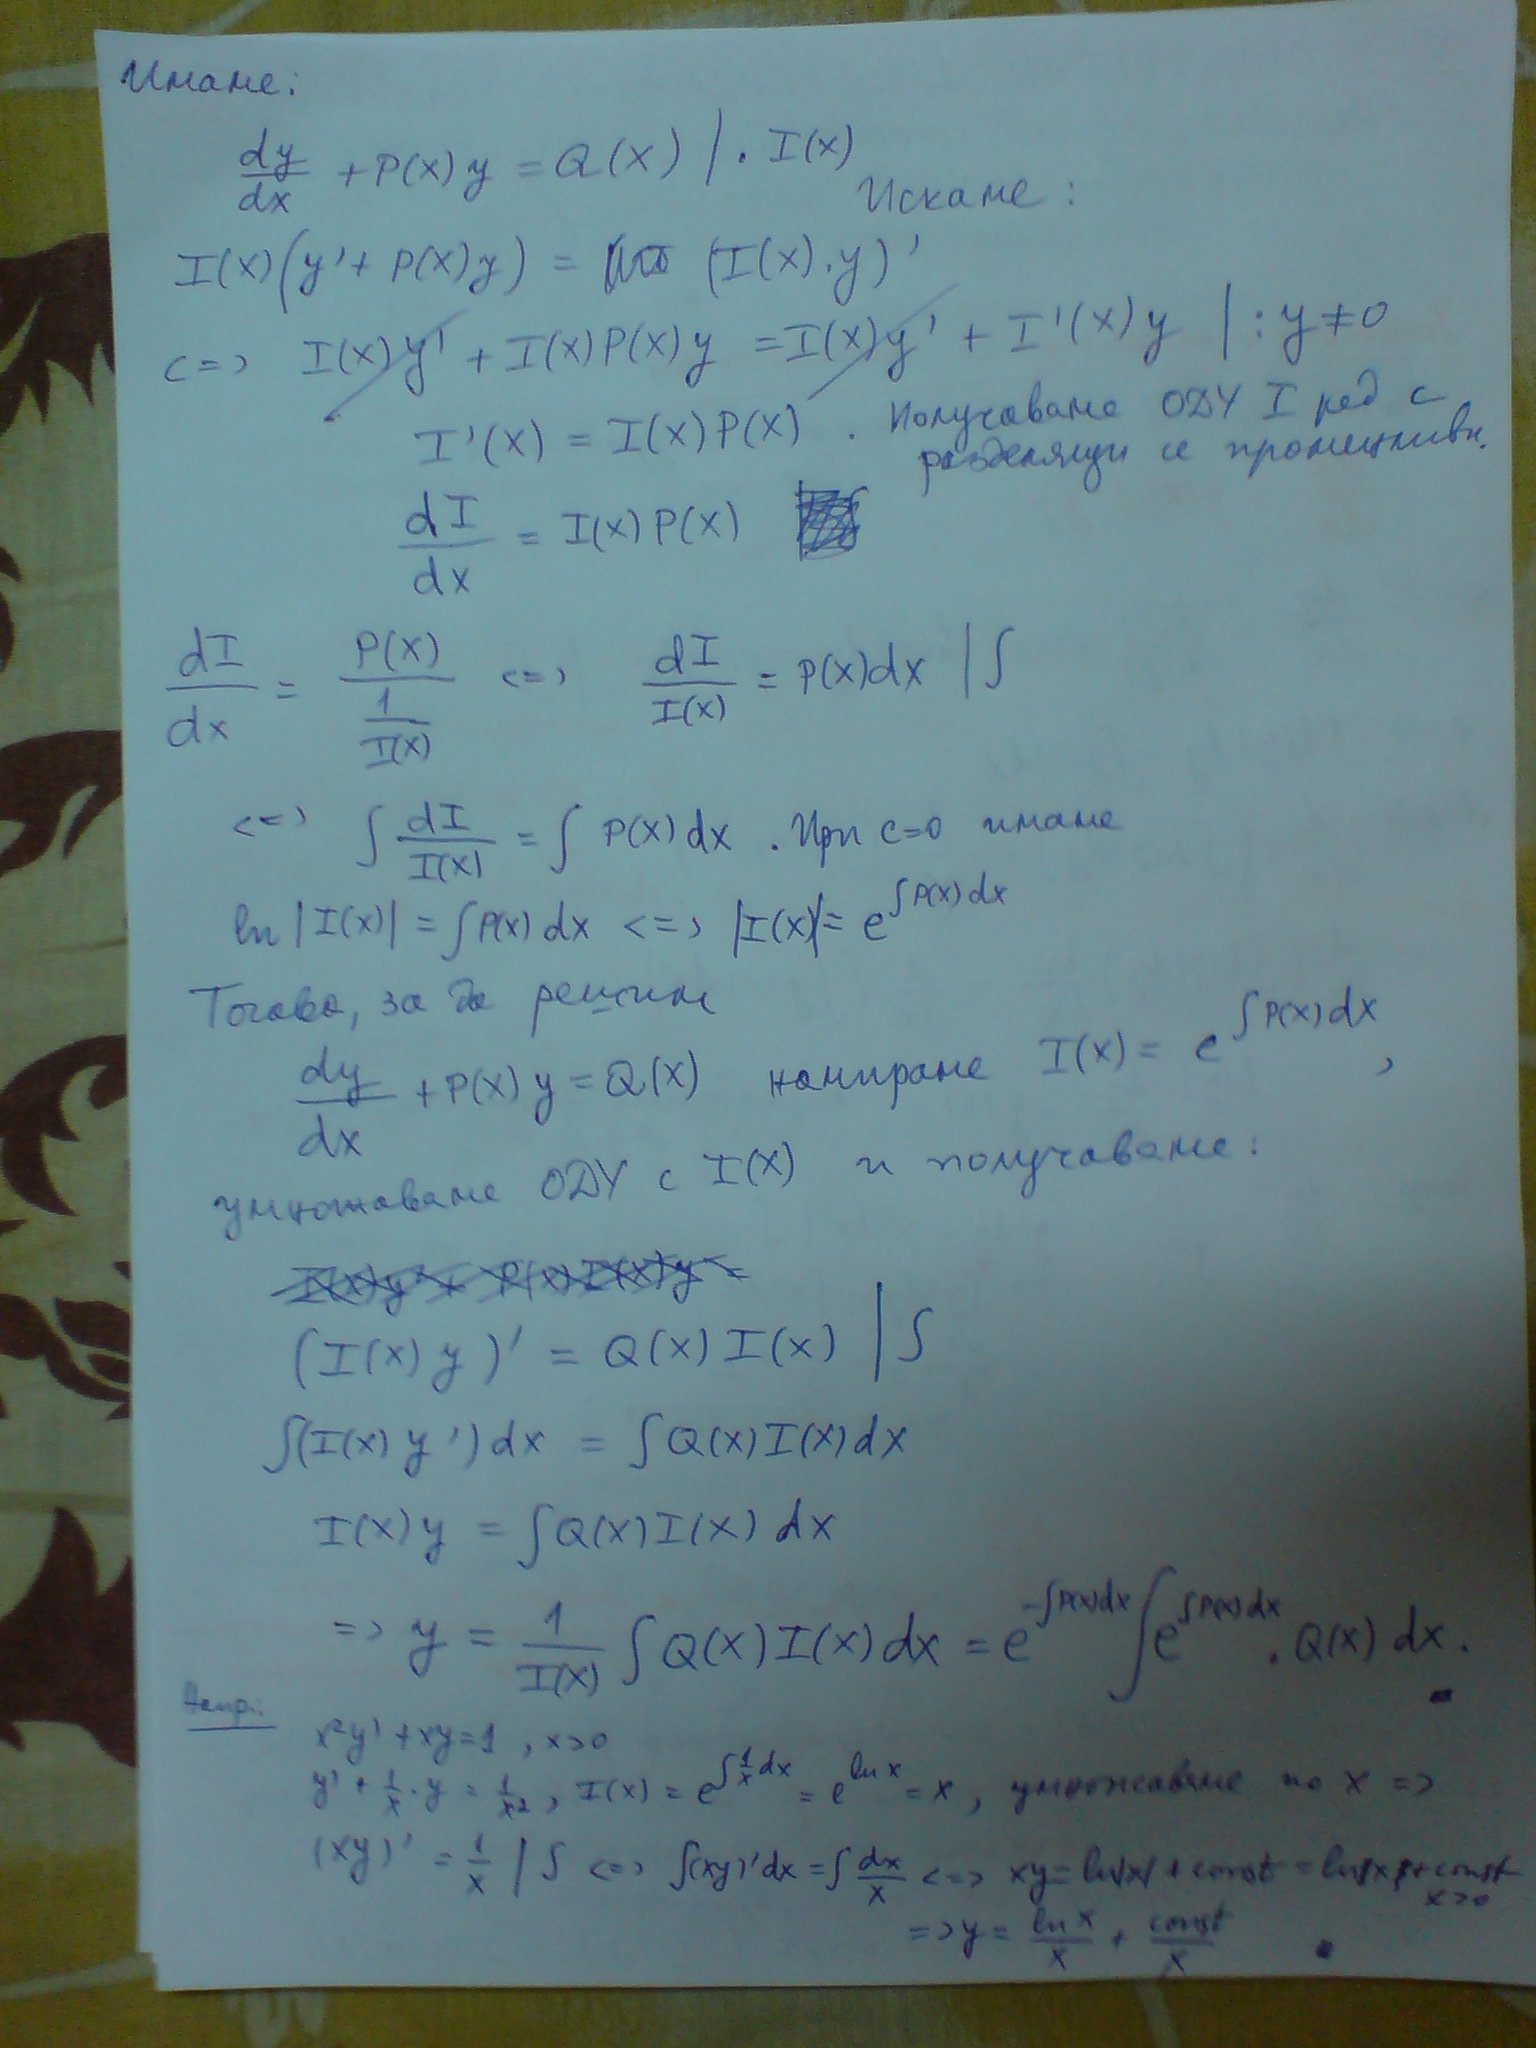 Имаме:
dy/dx + P(x)y = Q(x) | . I(x)
Искаме:
I(x)(y' + P(x)y) = (I(x).y)'
<=> I(x)y' + I(x)P(x)y = I(x)y' + I'(x)y | : y ≠ 0
I'(x) = I(x)P(x). Получаваме ОДУ I ред с
разделящи се променливи.
dI/dx = I(x)P(x)
dI/dx = P(x)/(1/I(x)) <=> dI/I(x) = P(x)dx | ∫
<=> ∫ dI/I(x) = ∫ P(x)dx . При c=0 имаме
ln|I(x)| = ∫P(x)dx <=> |I(x)| = e^∫P(x)dx
Тогава, за да решим
dy/dx + P(x)y = Q(x) намираме I(x) = e^∫P(x)dx,
умножаваме ОДУ с I(x) и получаваме:
I(x)y' + P(x)I(x)y =
(I(x)y)' = Q(x)I(x) | ∫
∫(I(x)y')dx = ∫Q(x)I(x)dx
I(x)y = ∫Q(x)I(x)dx
=> y = 1/I(x) ∫Q(x)I(x)dx = e^-∫P(x)dx ∫e^∫P(x)dx . Q(x)dx.
Напр.:
x²y' + xy = 1, x>0
y' + 1/x . y = 1/x², I(x) = e^∫1/x dx = e^ln x = x, умножаваме по x =>
(xy)' = 1/x | ∫ <=> ∫(xy)'dx = ∫dx/x <=> xy = ln|x| + const = ln|x| + const
x>0
=> y = ln x/x + const/x .